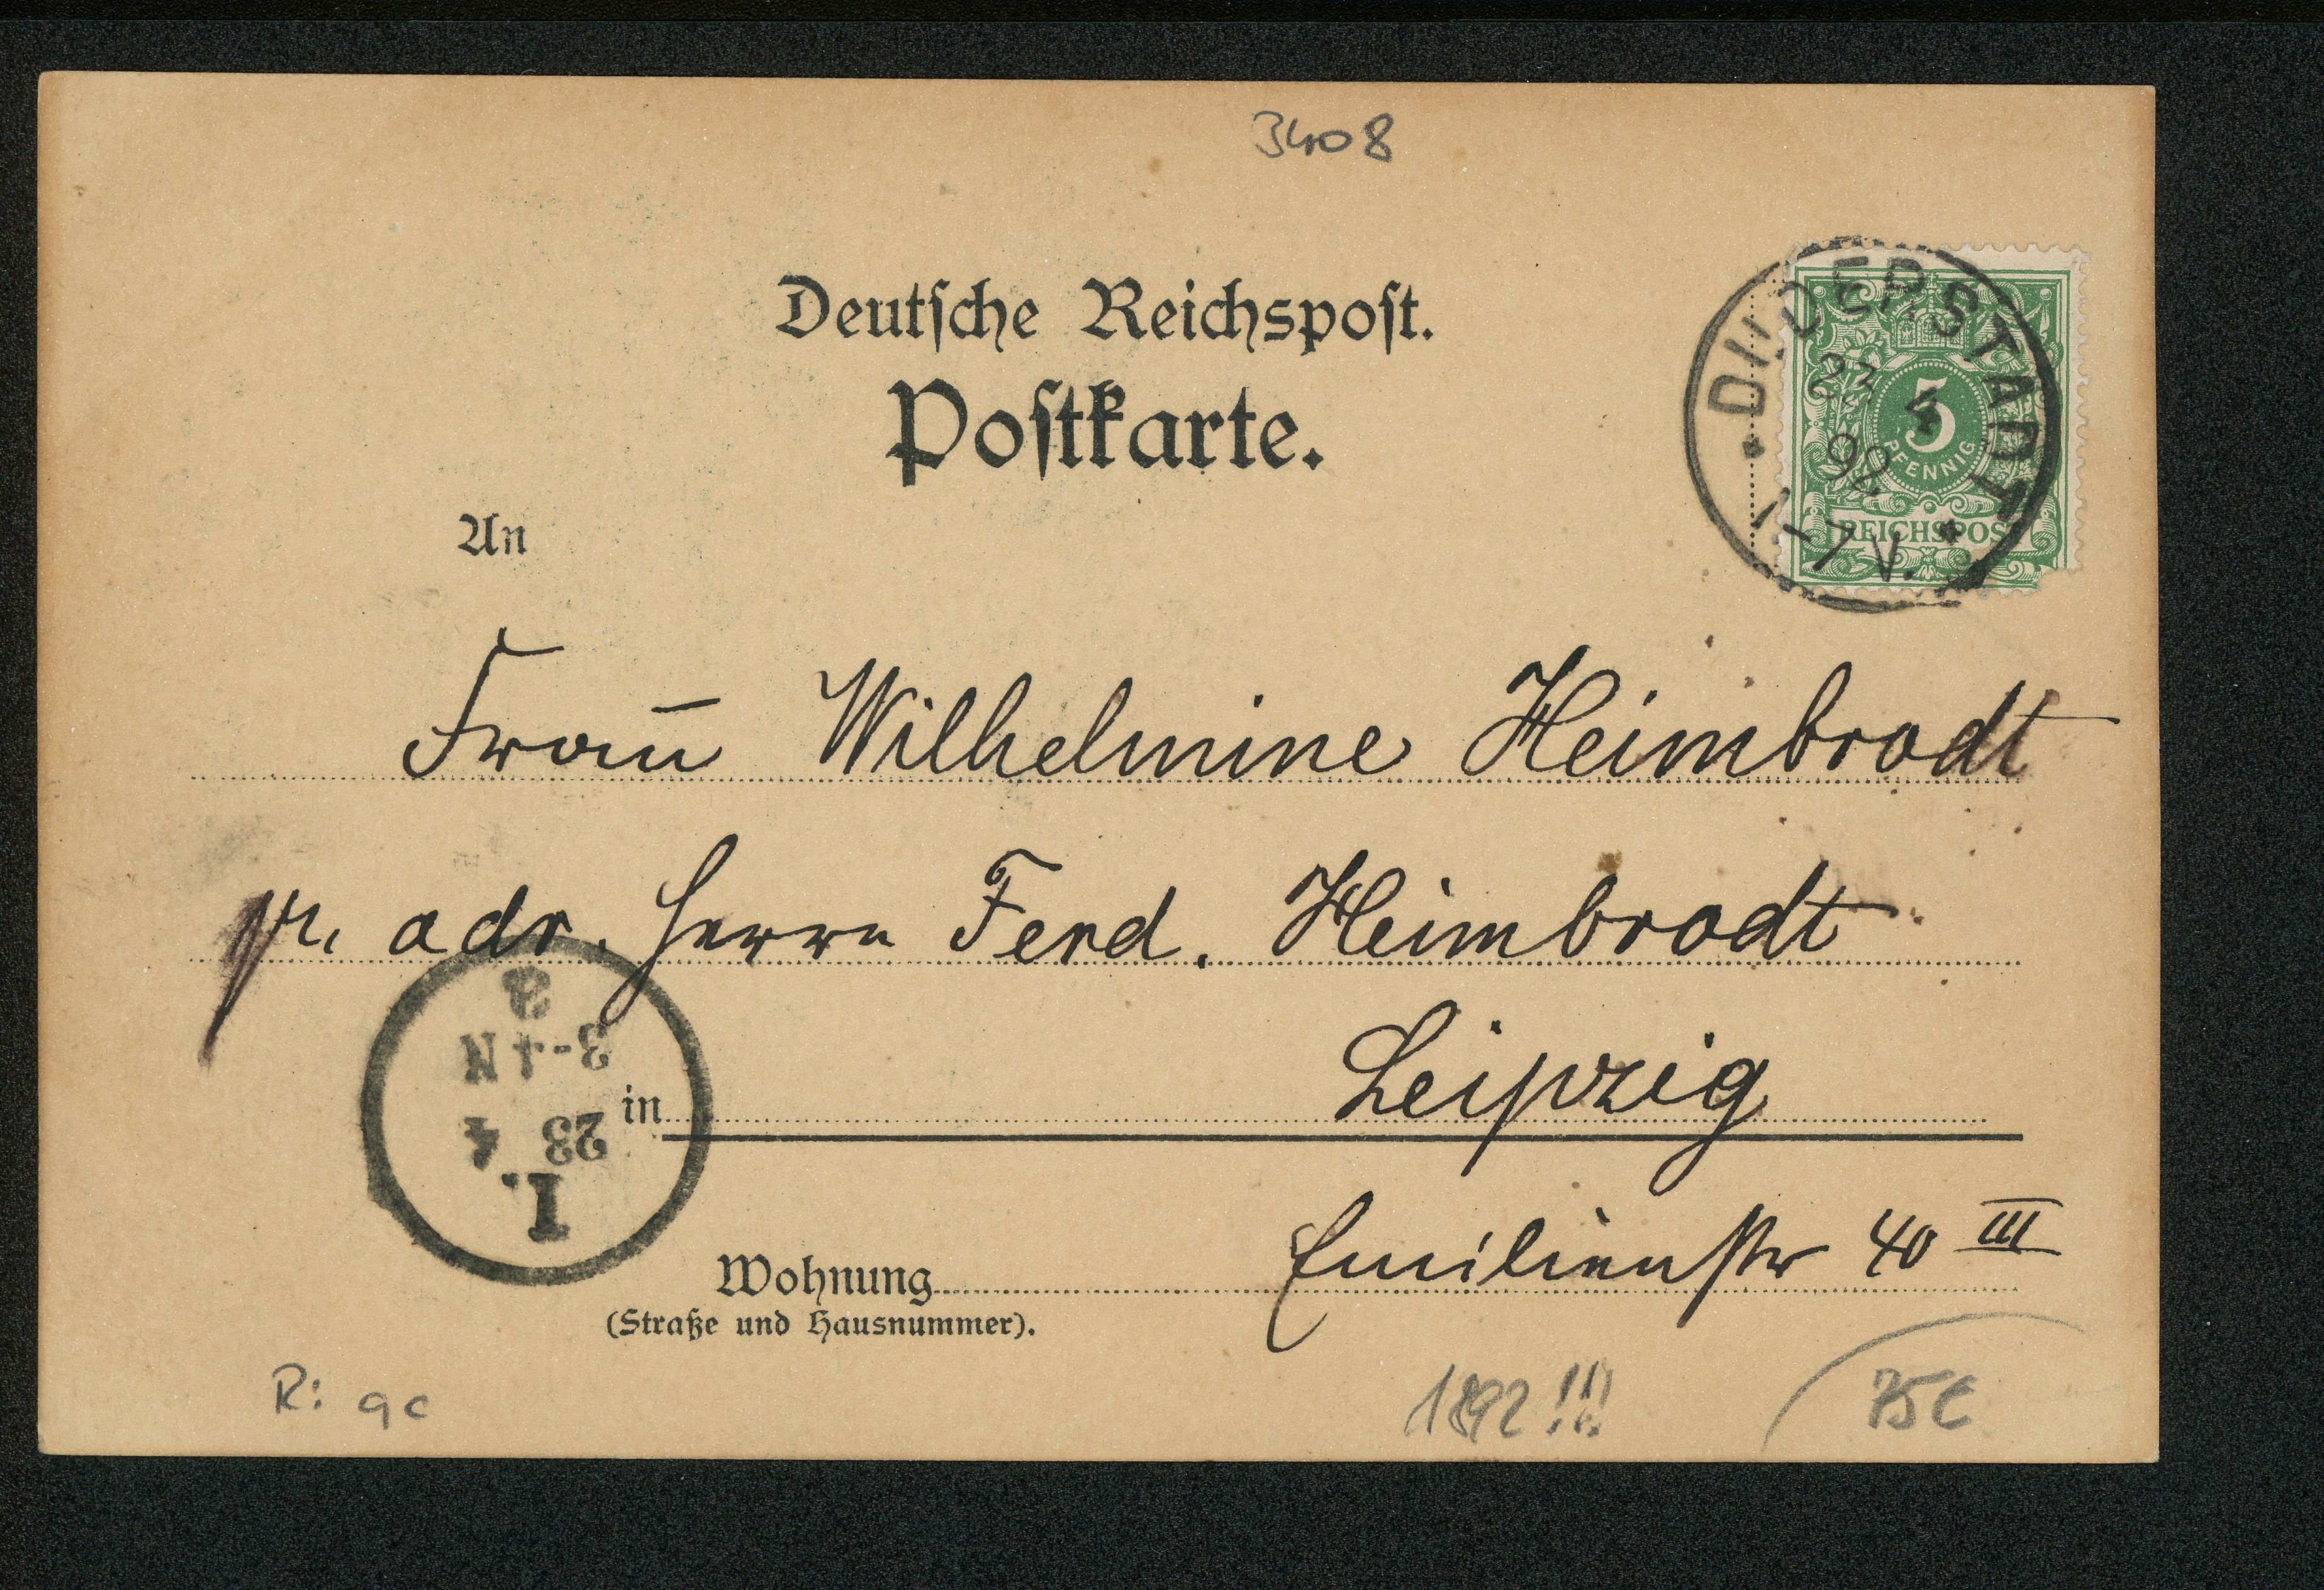 3408
Deutsche Reichspost.
Postkarte.
DUDERSTADT
23 4
92
1-7 V.
5
PFENNIG
REICHSPOST
An
Frau Wilhelmine Heimbrodt
pr. adr. Herrn Ferd. Heimbrodt
in Leipzig
Wohnung Emilienstr 40 III
(Straße und Hausnummer).
I.
23 4
3-4 N
a
R: 9c
1892!!!
75€